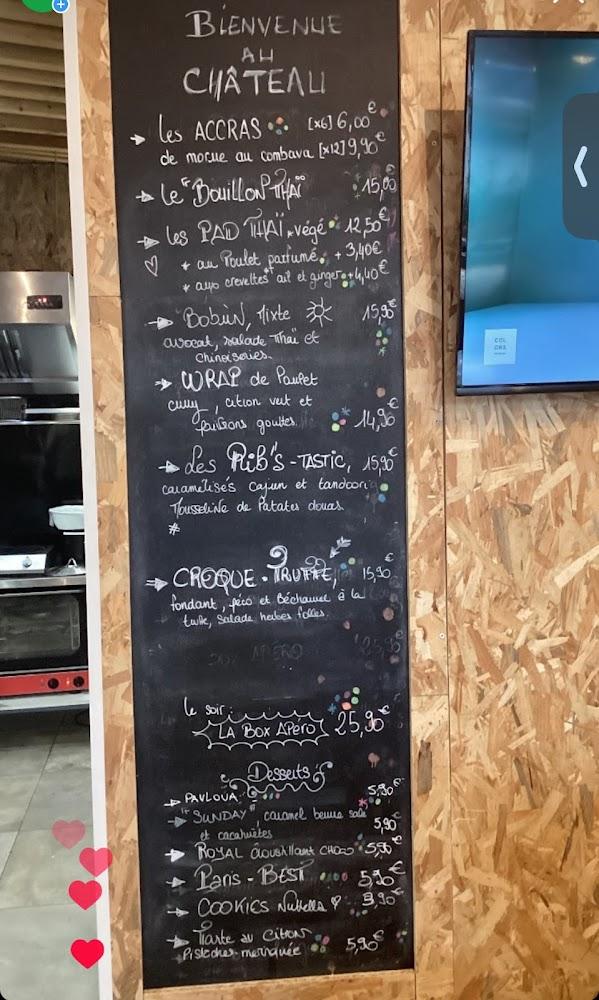 BIENVENUE
AU
CHÂTEAU
Les ACCRAS [x6] 6,00€
de morue au combava [x12] 9,90€
Le "BOUILLON THAÏ 15,00
Les PAD THAÏ végé 12,50€
* au Poulet parfumé + 3,40€
* aux crevettes ail et ginger +4,40€
BOBUN, Mixte 15,90€
avocat, salade Thaï et
chinoiseries.
WRAP de Poulet
curry, citron vert et
poivrons gouttes. 14,90€
Les Rib's-TASTIC, 15,90€
caramélisés cajun et tandoori
Mousseline de Patates douces
#
CROQUE. TRUFFE, 15,90€
fondant, et Béchamel à la
truffe, salade herbes folles.
APERO 25,90
Le soir:
LA BOX APéro 25,90€
Desserts
PAVLOVA 5,90€
"SUNDAY", caramel beurre salé
et cacahuètes 5,90€
ROYAL Croustillant CHOCO 5,90€
PARIS-BEST 5,90€
COOKIES Nutella 3,90€
Tarte au Citron
Pistaches meringuée 5,90€
COL
ORS